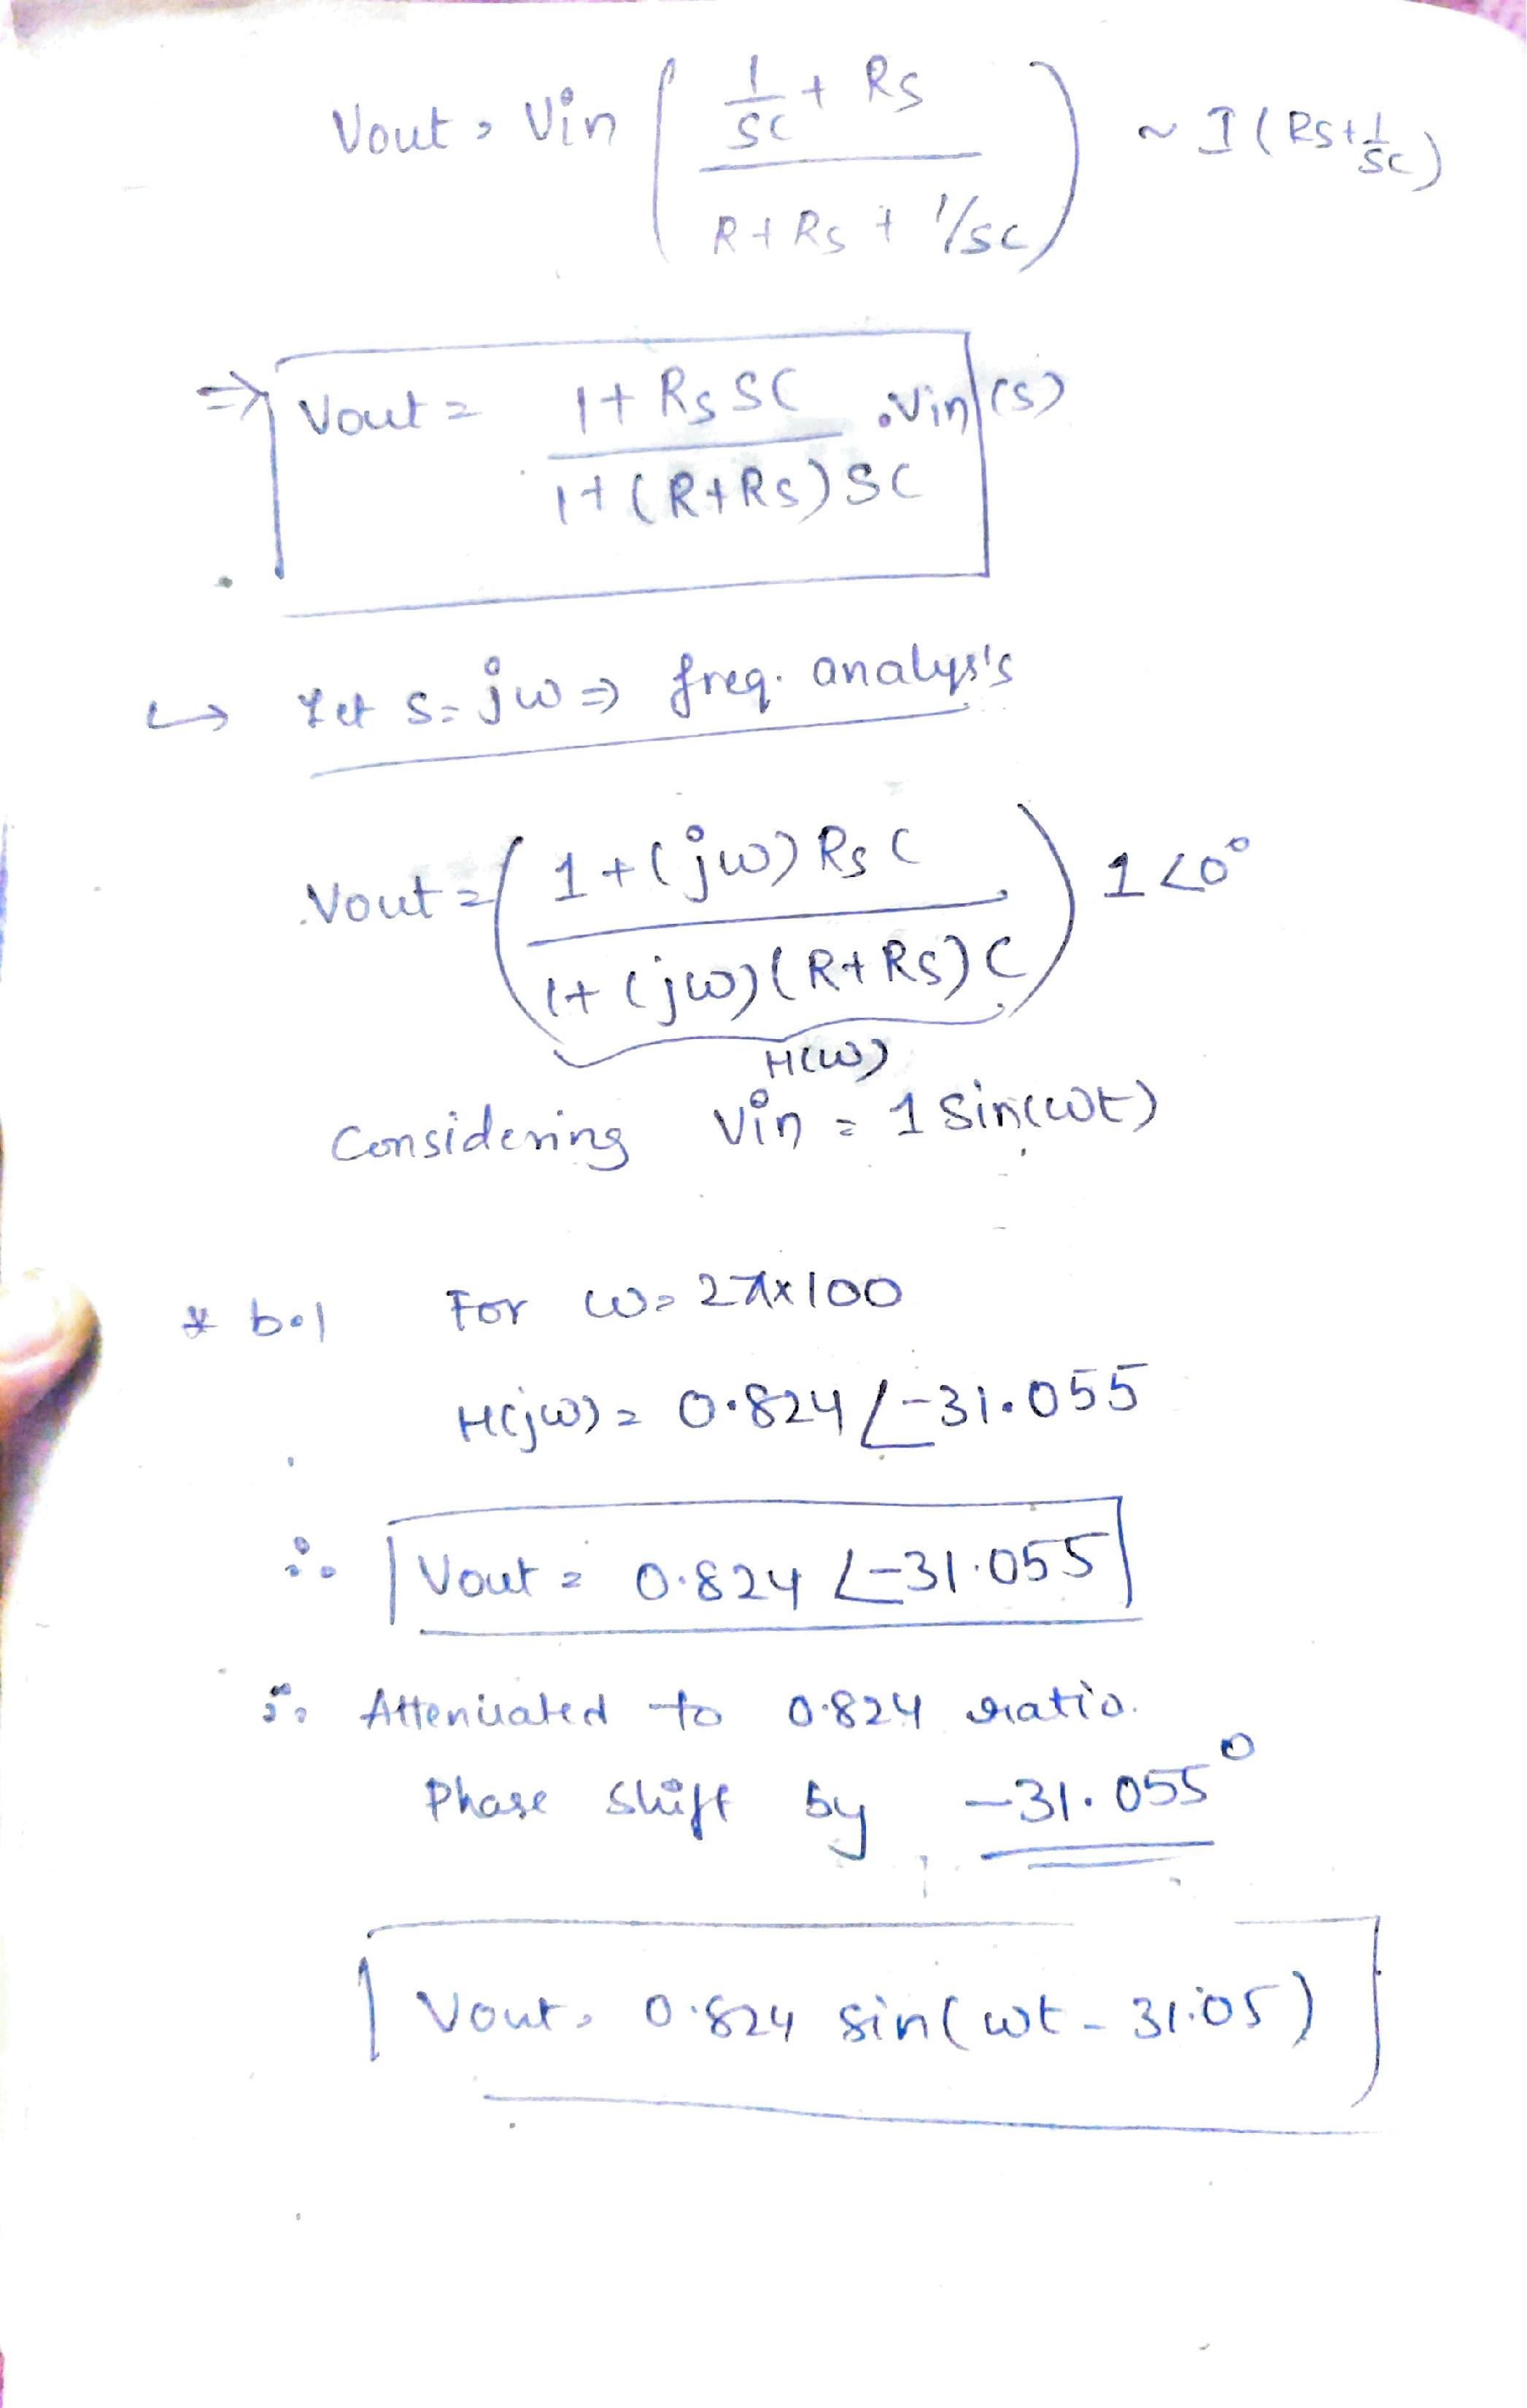 Vout = Vin ( (1/SC + RS) / (R + RS + 1/SC) ) ~ I(RS + 1/SC)
⇒ Vout = (1 + RS SC) / (1 + (R + RS) SC) . Vin(s)
↳ Let S = jω ⇒ freq. analysis
Vout = ( (1 + (jω) RS C) / (1 + (jω)(R + RS) C) ) 1∠0°
H(ω)
Considering Vin = 1 Sin(ωt)
* b.1 For ω = 2π×100
H(jω) = 0.824 ∠-31.055
∴ Vout = 0.824 ∠-31.055
∴ Attenuated to 0.824 ratio.
Phase shift by -31.055°
Vout = 0.824 sin(ωt - 31.05)